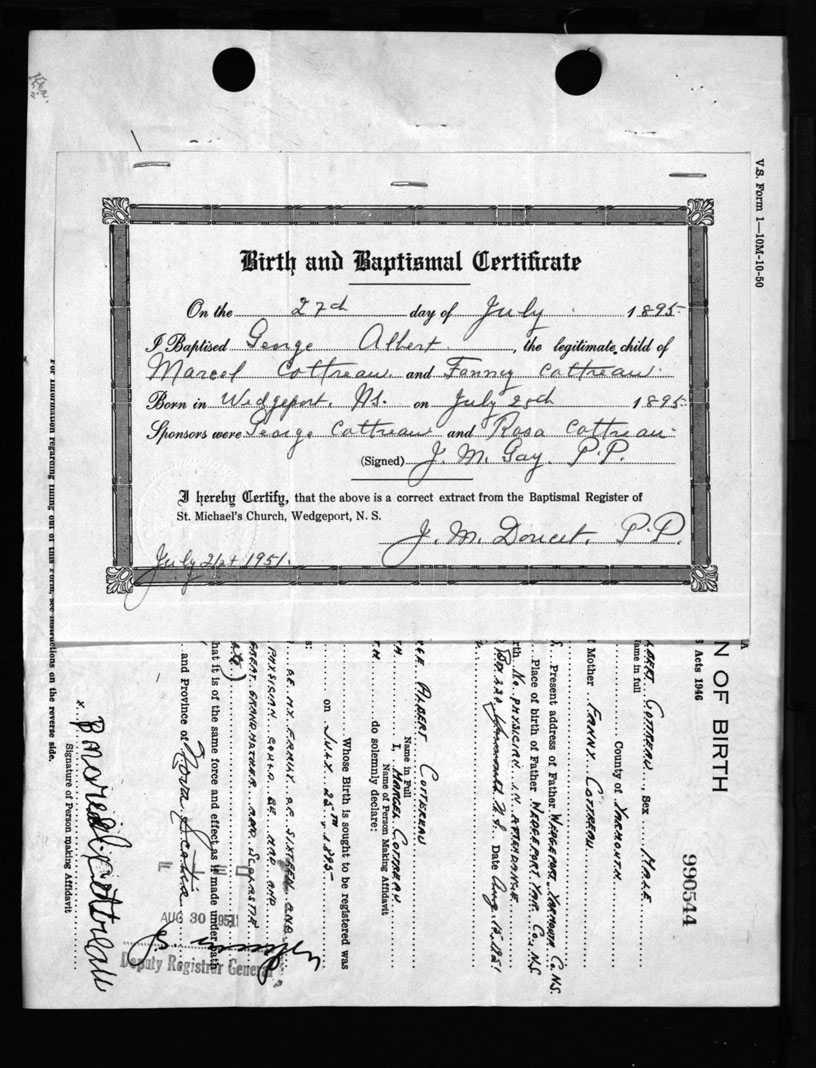 V.S. Form 1—10M-10-50
Birth and Baptismal Certificate
On the 27th day of July 1895
I Baptised George Albert, the legitimate child of
Marcel Cottreau and Fanny Cottreau
Born in Wedgeport, N.S. on July 25th 1895
Sponsors were George Cottreau and Rosa Cottreau
(Signed) J. M. Gay. P.P.
I hereby Certify, that the above is a correct extract from the Baptismal Register of
St. Michael's Church, Wedgeport, N. S.
J. M. Doucet, P.P.
July 21st 1951.
N OF BIRTH
Acts 1946
990544
Cottreau, Sex Male
Name in full
County of Yarmouth
Mother Fanny Cottreau
Present address of Father Wedgeport, Yarmouth Co. N.S.
Place of birth of Father Wedgeport, Yar. Co., N.S.
No physician in attendance
Box 220 Yarmouth N.S. Date Aug. 15, 1951
Albert Cottereau
Name in Full
I, Marcel Cottreau
Name of Person Making Affidavit
do solemnly declare:
Whose Birth is sought to be registered was
on July 25th, 1895
of my family of sixteen and
physician could be had and
great grandmother and
hat it is of the same force and effect as if made under oath
and Province of Nova Scotia
AUG 30 1951
Deputy Registrar General
x Marcel Cottreau
Signature of Person making Affidavit
For information regarding filling out of this form, see instructions on the reverse side.